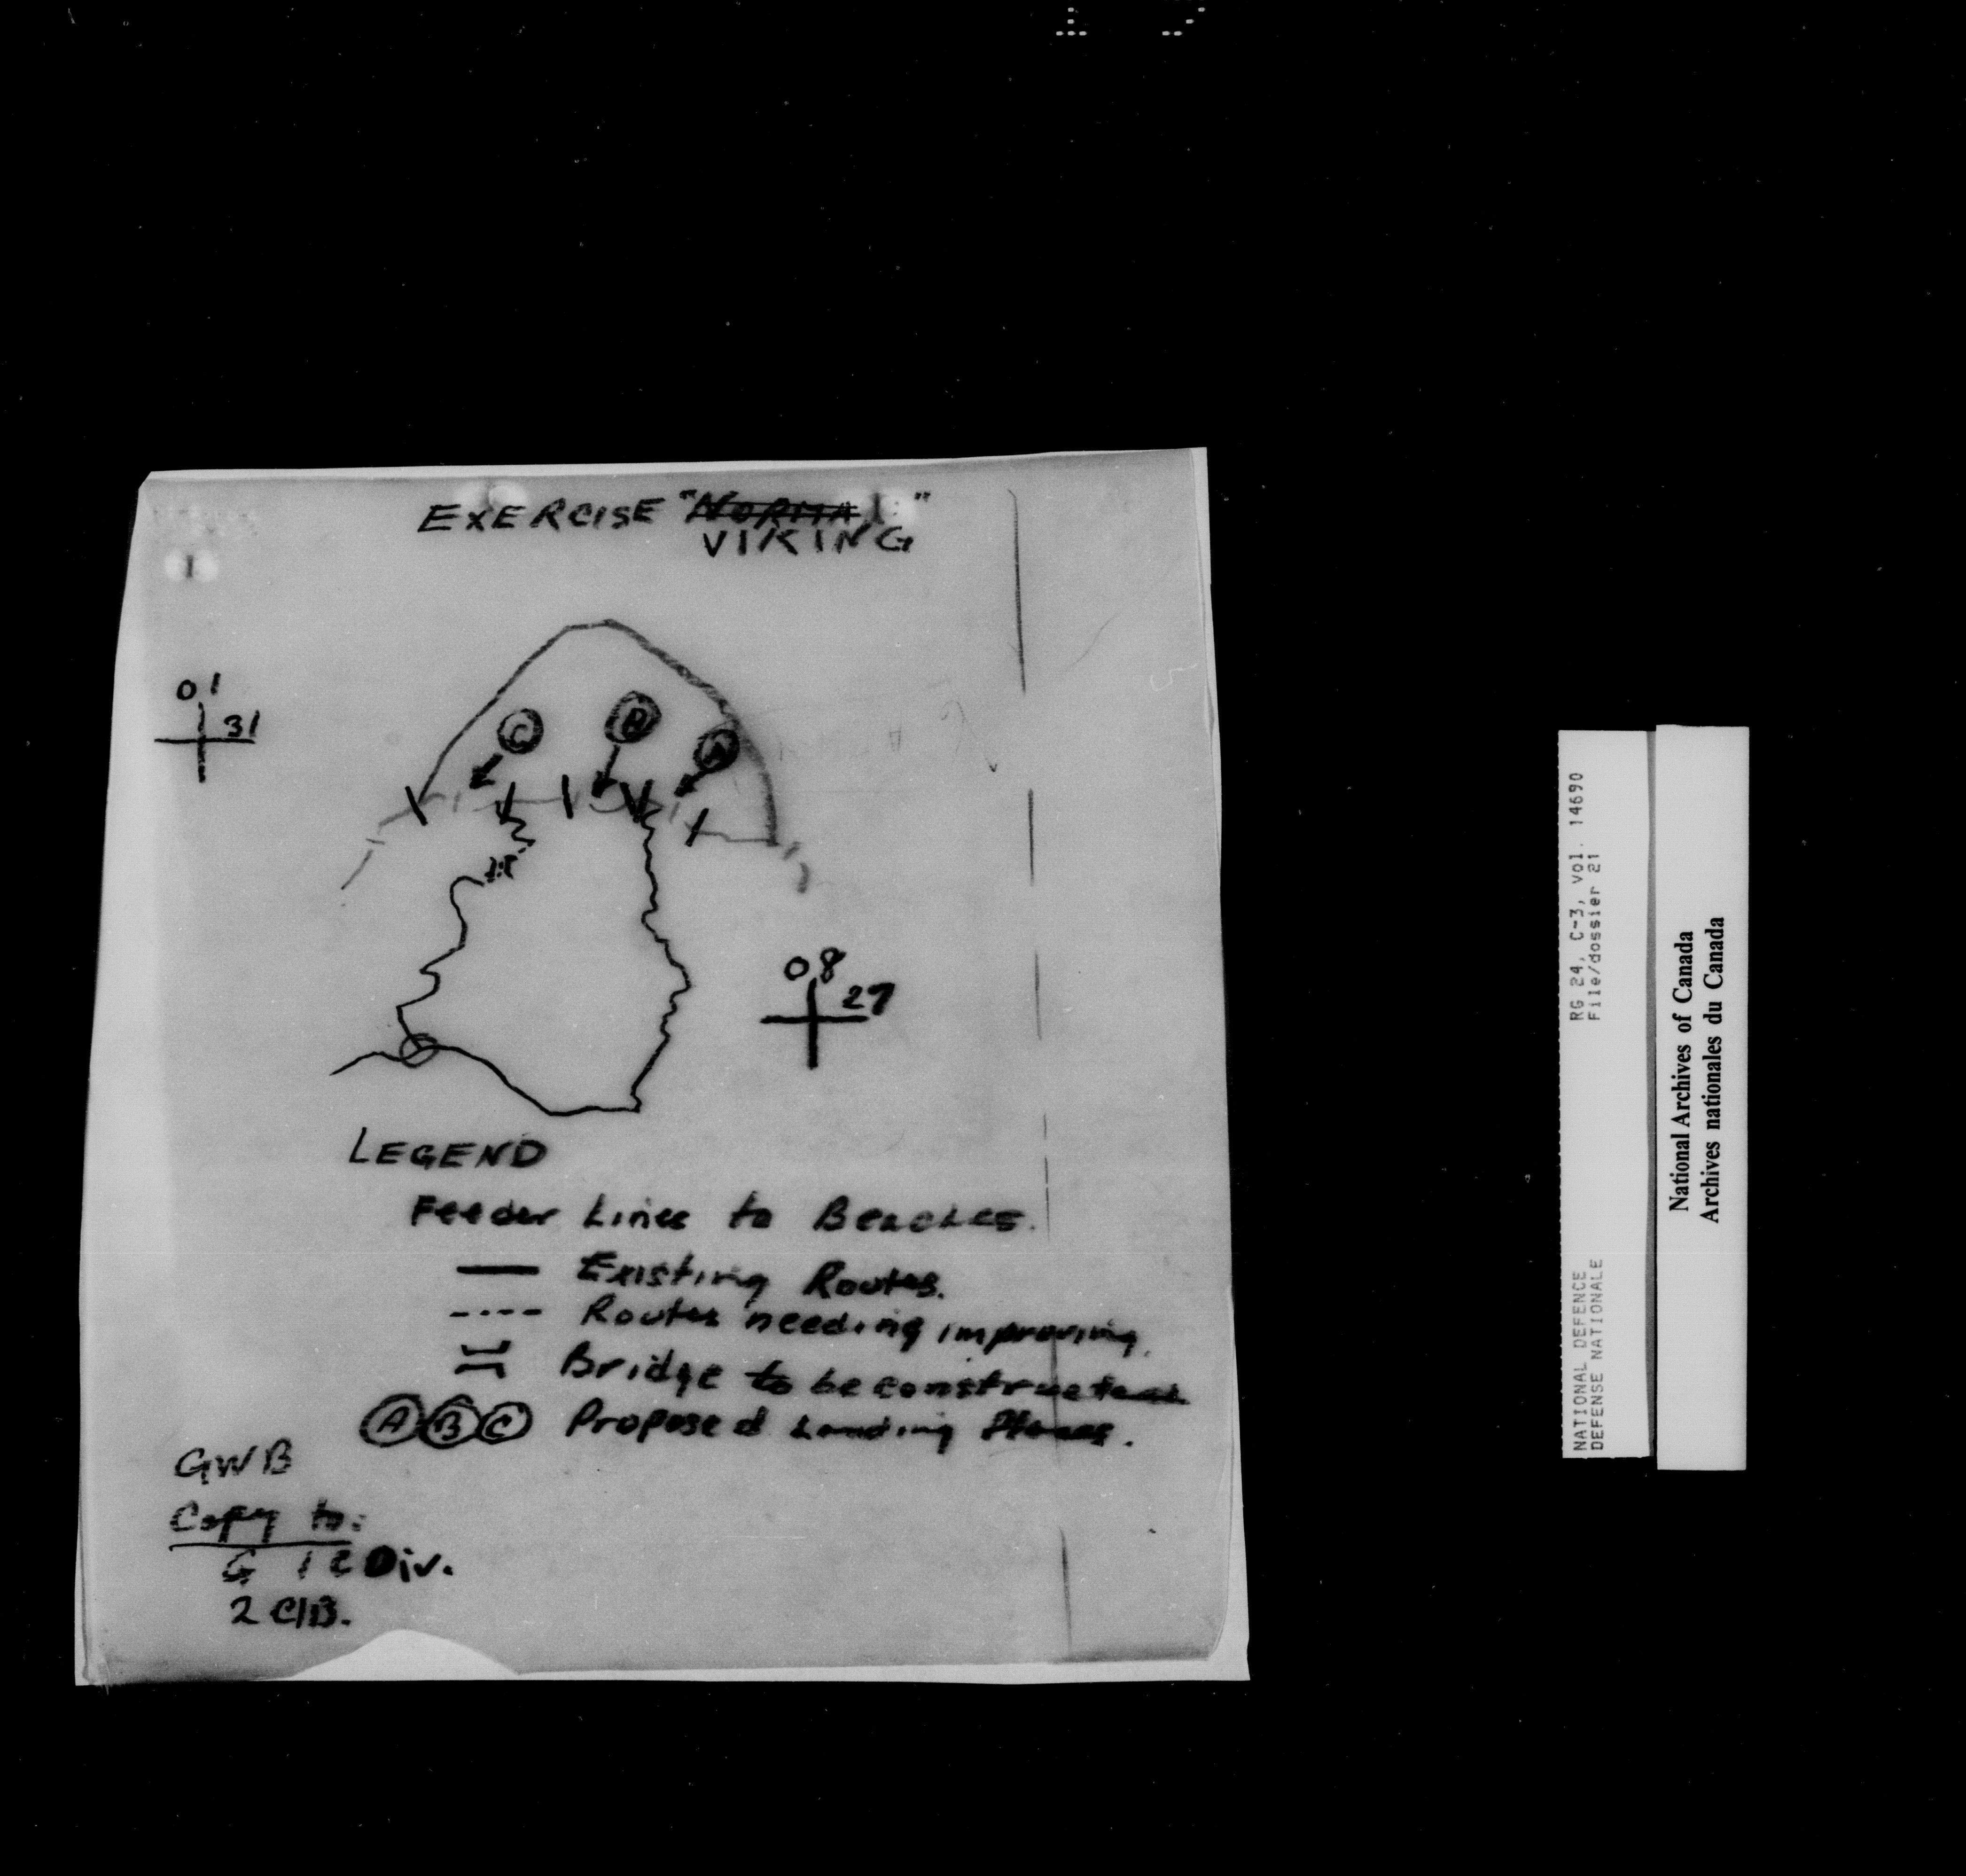 EXERCISE "NORMA "
VIKING
01
31
C
B
A
08
27
LEGEND
Feeder Lines to Beaches.
Existing Routes.
Routes needing improving.
Bridge to be constructed
A B C Proposed Landing Places.
GWB
Copy to:
G 1 C Div.
2 CIB.
RG 24, C-3, Vol. 14690
File/dossier 21
NATIONAL DEFENCE
DEFENSE NATIONALE
National Archives of Canada
Archives nationales du Canada